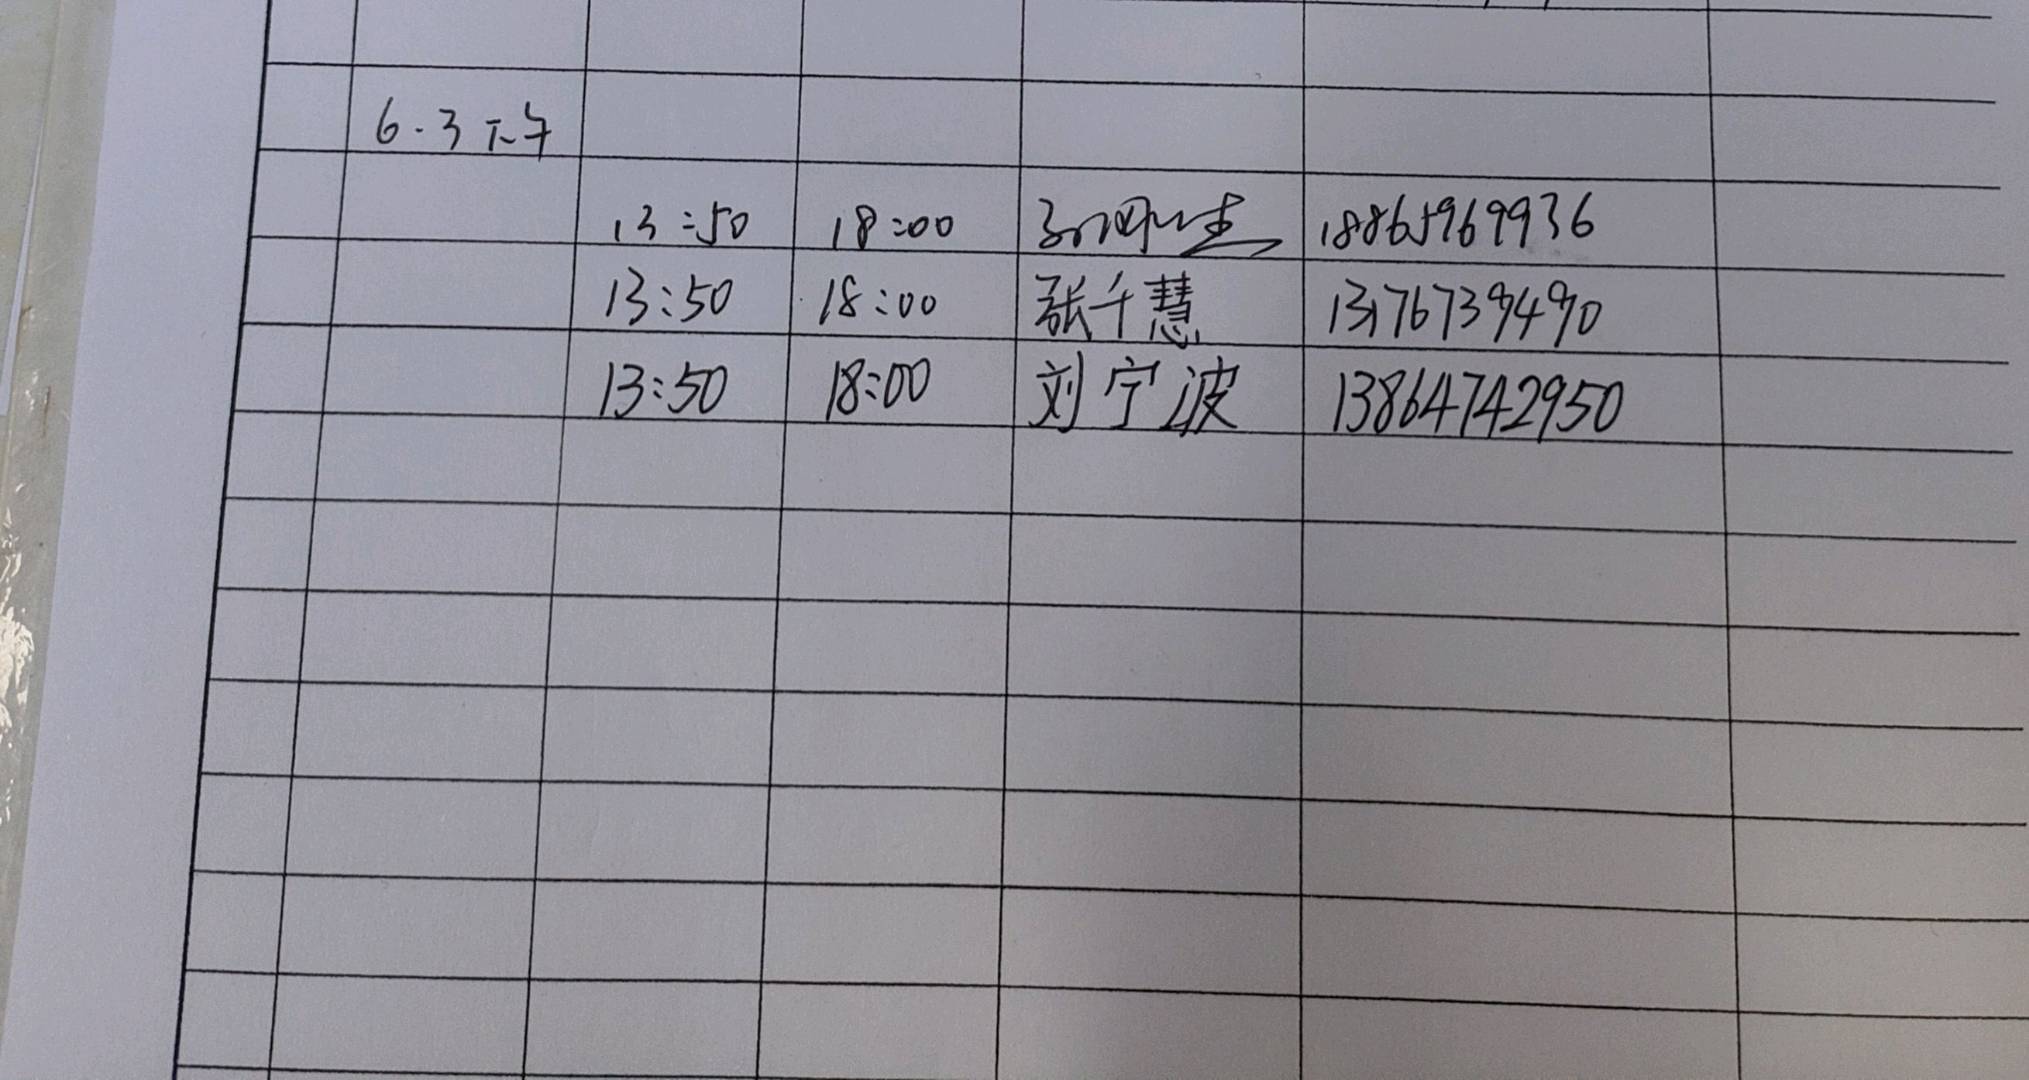 6.3 下午
13:50 18:00 18865969936
13:50 18:00 张千慧 13176739490
13:50 18:00 刘宁波 13864742950